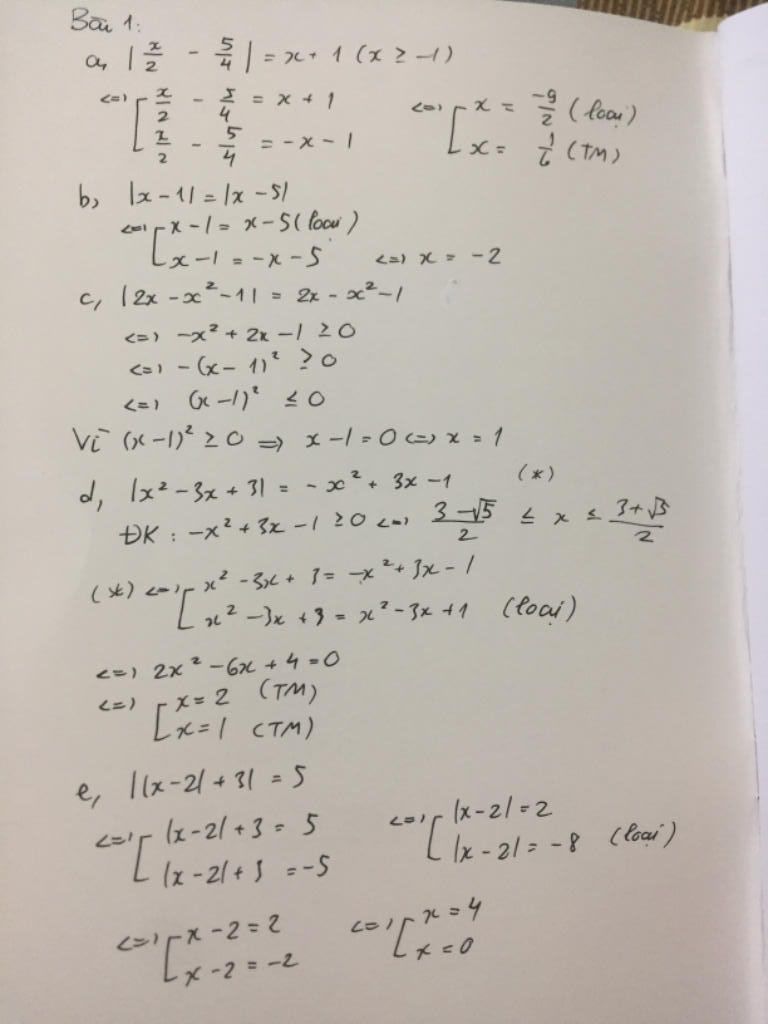 Bài 1:
a, |x/2 - 5/4| = x + 1 (x ≥ -1)
<=> [ x/2 - 5/4 = x + 1 <=> [ x = -9/2 (loại)
x/2 - 5/4 = -x - 1 x = 1/6 (TM)
b, |x - 1| = |x - 5|
<=> [ x - 1 = x - 5 (loại)
x - 1 = -x - 5 <=> x = -2
c, |2x - x² - 1| = 2x - x² - 1
<=> -x² + 2x - 1 ≥ 0
<=> -(x - 1)² ≥ 0
<=> (x - 1)² ≤ 0
Vì (x - 1)² ≥ 0 => x - 1 = 0 <=> x = 1
d, |x² - 3x + 3| = -x² + 3x - 1 (*)
ĐK : -x² + 3x - 1 ≥ 0 <=> (3 - √5)/2 ≤ x ≤ (3 + √5)/2
(*) <=> [ x² - 3x + 3 = -x² + 3x - 1
x² - 3x + 3 = x² - 3x + 1 (loại)
<=> 2x² - 6x + 4 = 0
<=> [ x = 2 (TM)
x = 1 (TM)
e, ||x - 2| + 3| = 5
<=> [ |x - 2| + 3 = 5 <=> [ |x - 2| = 2
|x - 2| + 3 = -5 |x - 2| = -8 (loại)
<=> [ x - 2 = 2 <=> [ x = 4
x - 2 = -2 x = 0